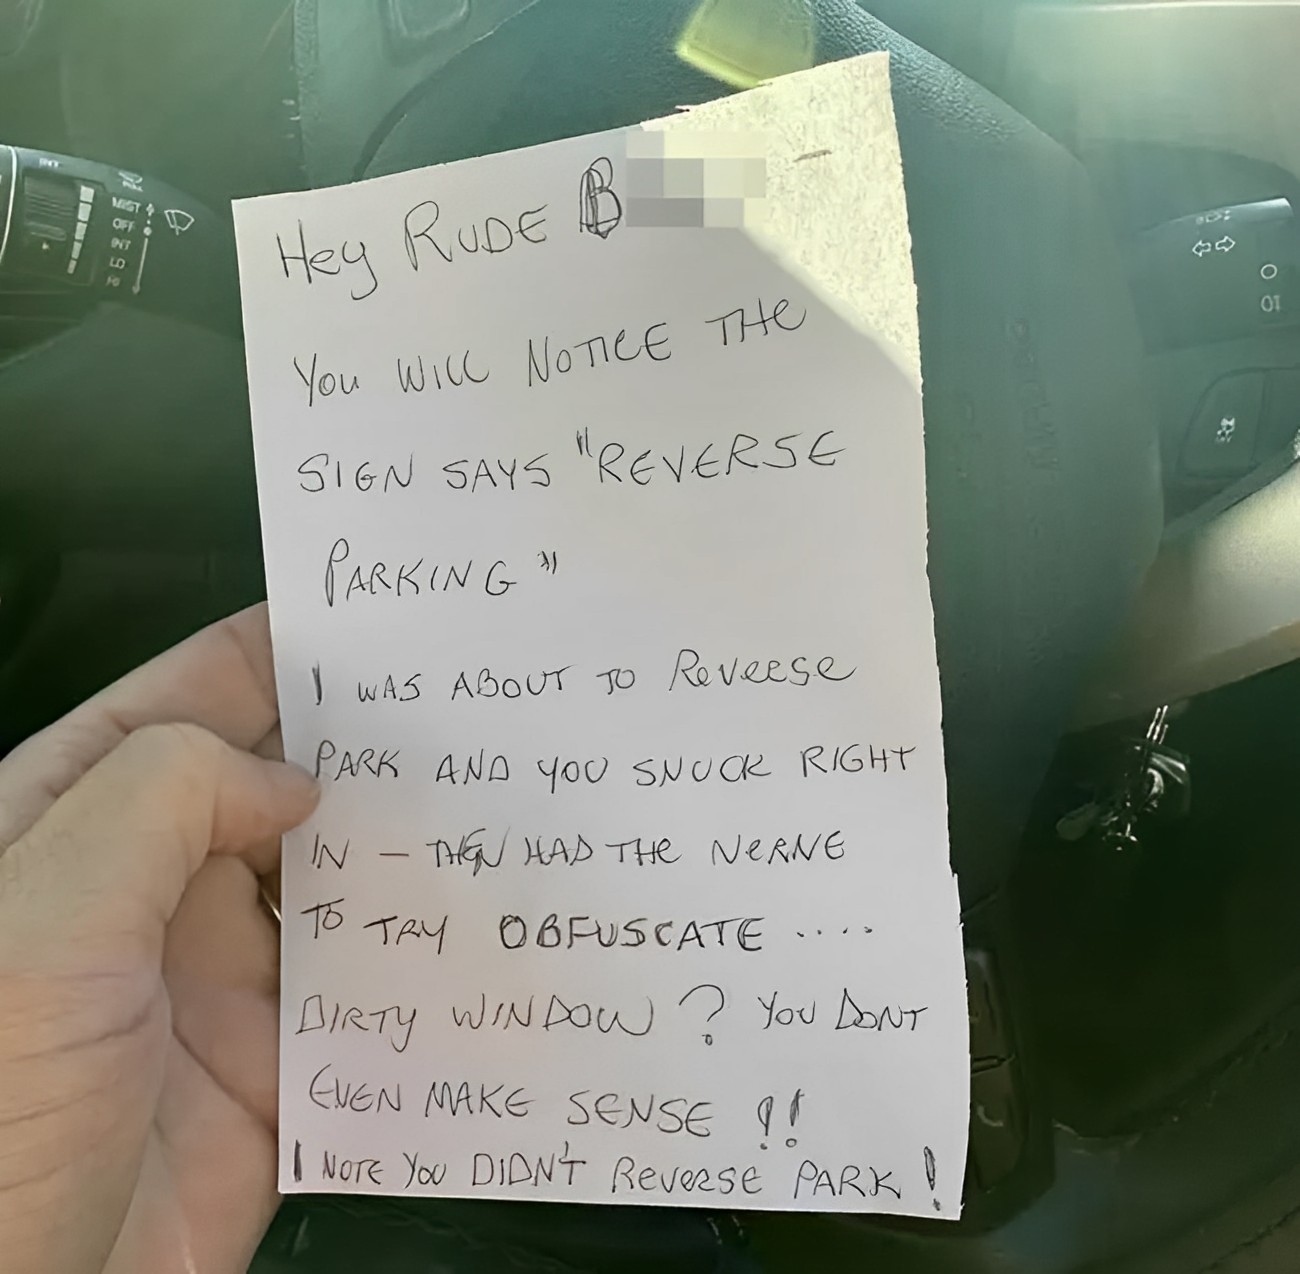 Hey RUDE B
You WILL NOTICE THE
SIGN SAYS "REVERSE
PARKING"
I WAS ABOUT TO Reverse
PARK AND YOU SNUCK RIGHT
IN — THEN HAD THE NERVE
TO TRY OBFUSCATE ....
DIRTY WINDOW? YOU DONT
EVEN MAKE SENSE !!
I NOTE YOU DIDN'T Reverse PARK!
INT
MIST
OFF
INT
LO
HI